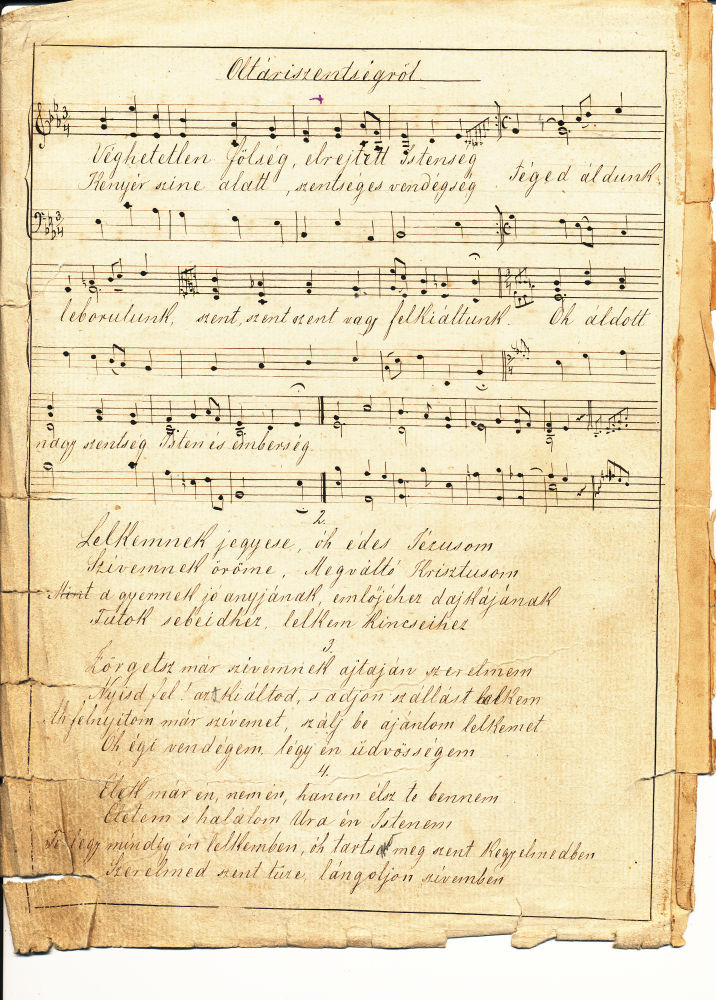 Oltáriszentségről
Véghetetlen fölség, elrejtett Istenség
Kenyér szine alatt, szentséges vendégség Téged áldunk
leborulunk, szent, szent szent vagy felkiáltunk. Oh áldott
nagy szentség Isten és emberség.
2.
Lelkemnek jegyese, óh édes Jézusom
Szivemnek öröme, Megváltó Krisztusom
Mint a gyermek jó anyjának, emlőjéhez dajkájának
Futok sebeidhez, lelkem kincseihez
3.
Zörgetsz már szivemnek ajtaján szerelmem
Nyisd fel! azt kiáltod, s adjon szállást lelkem
Ah felnyitom már szivemet, szálj be ajánlom lelkemet
Oh égi vendégem, légy én üdvösségem
4.
Élek már én, nem én, hanem élsz te bennem
Életem s halálom Ura én Istenem
Te légy mindig én lelkemben, óh tarts meg szent kegyelmedben
Szerelmed szent tüze, lángoljon szivemben